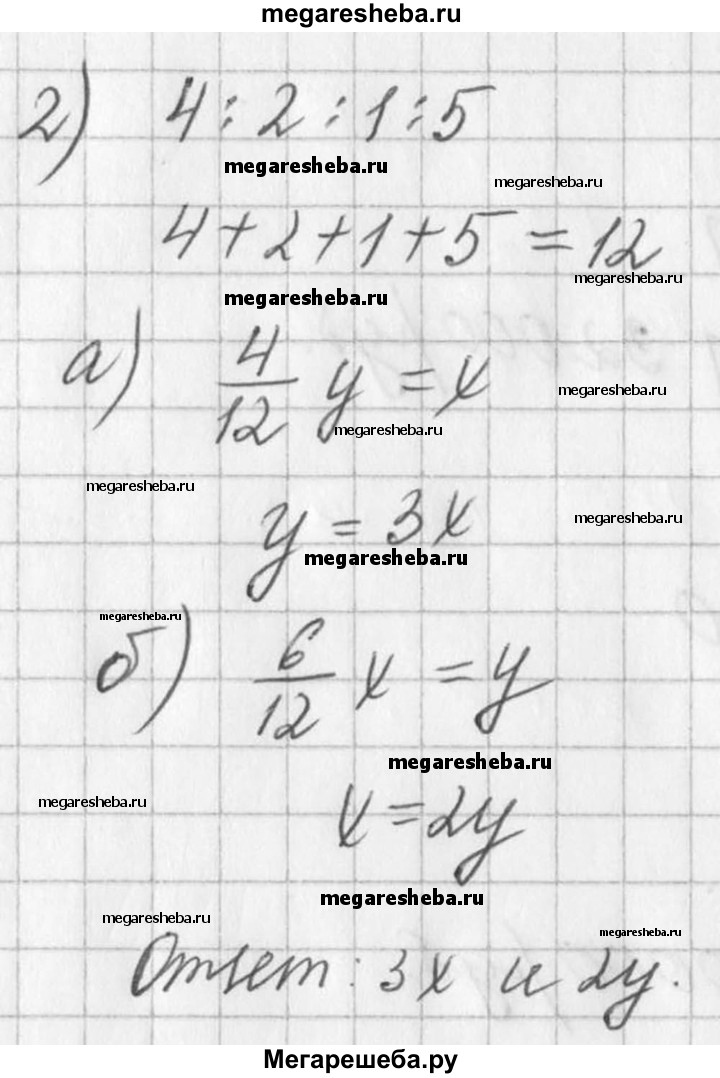 megaresheba.ru
2) 4 : 2 : 1 : 5
megaresheba.ru
megaresheba.ru
4 + 2 + 1 + 5 = 12
megaresheba.ru
megaresheba.ru
а) 4/12 y = x
megaresheba.ru
megaresheba.ru
megaresheba.ru
megaresheba.ru
y = 3x
megaresheba.ru
megaresheba.ru
б) 6/12 x = y
megaresheba.ru
megaresheba.ru
x = 2y
megaresheba.ru
megaresheba.ru
megaresheba.ru
Ответ: 3x и 2y.
Мегарешеба.ру